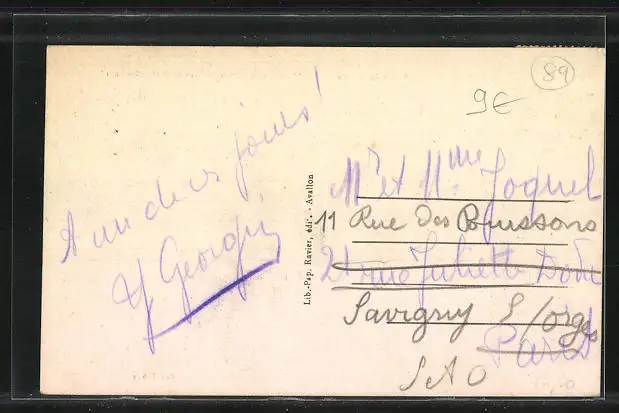 89
9€
A un de ces jours !
Y Georgin
Lib.-Pap. Ravier, édit. - Avallon
Mr et Mme Joquel
11 Rue Des Buissons
21 rue Juliette Dodu
Savigny S/orges
Paris
S et O